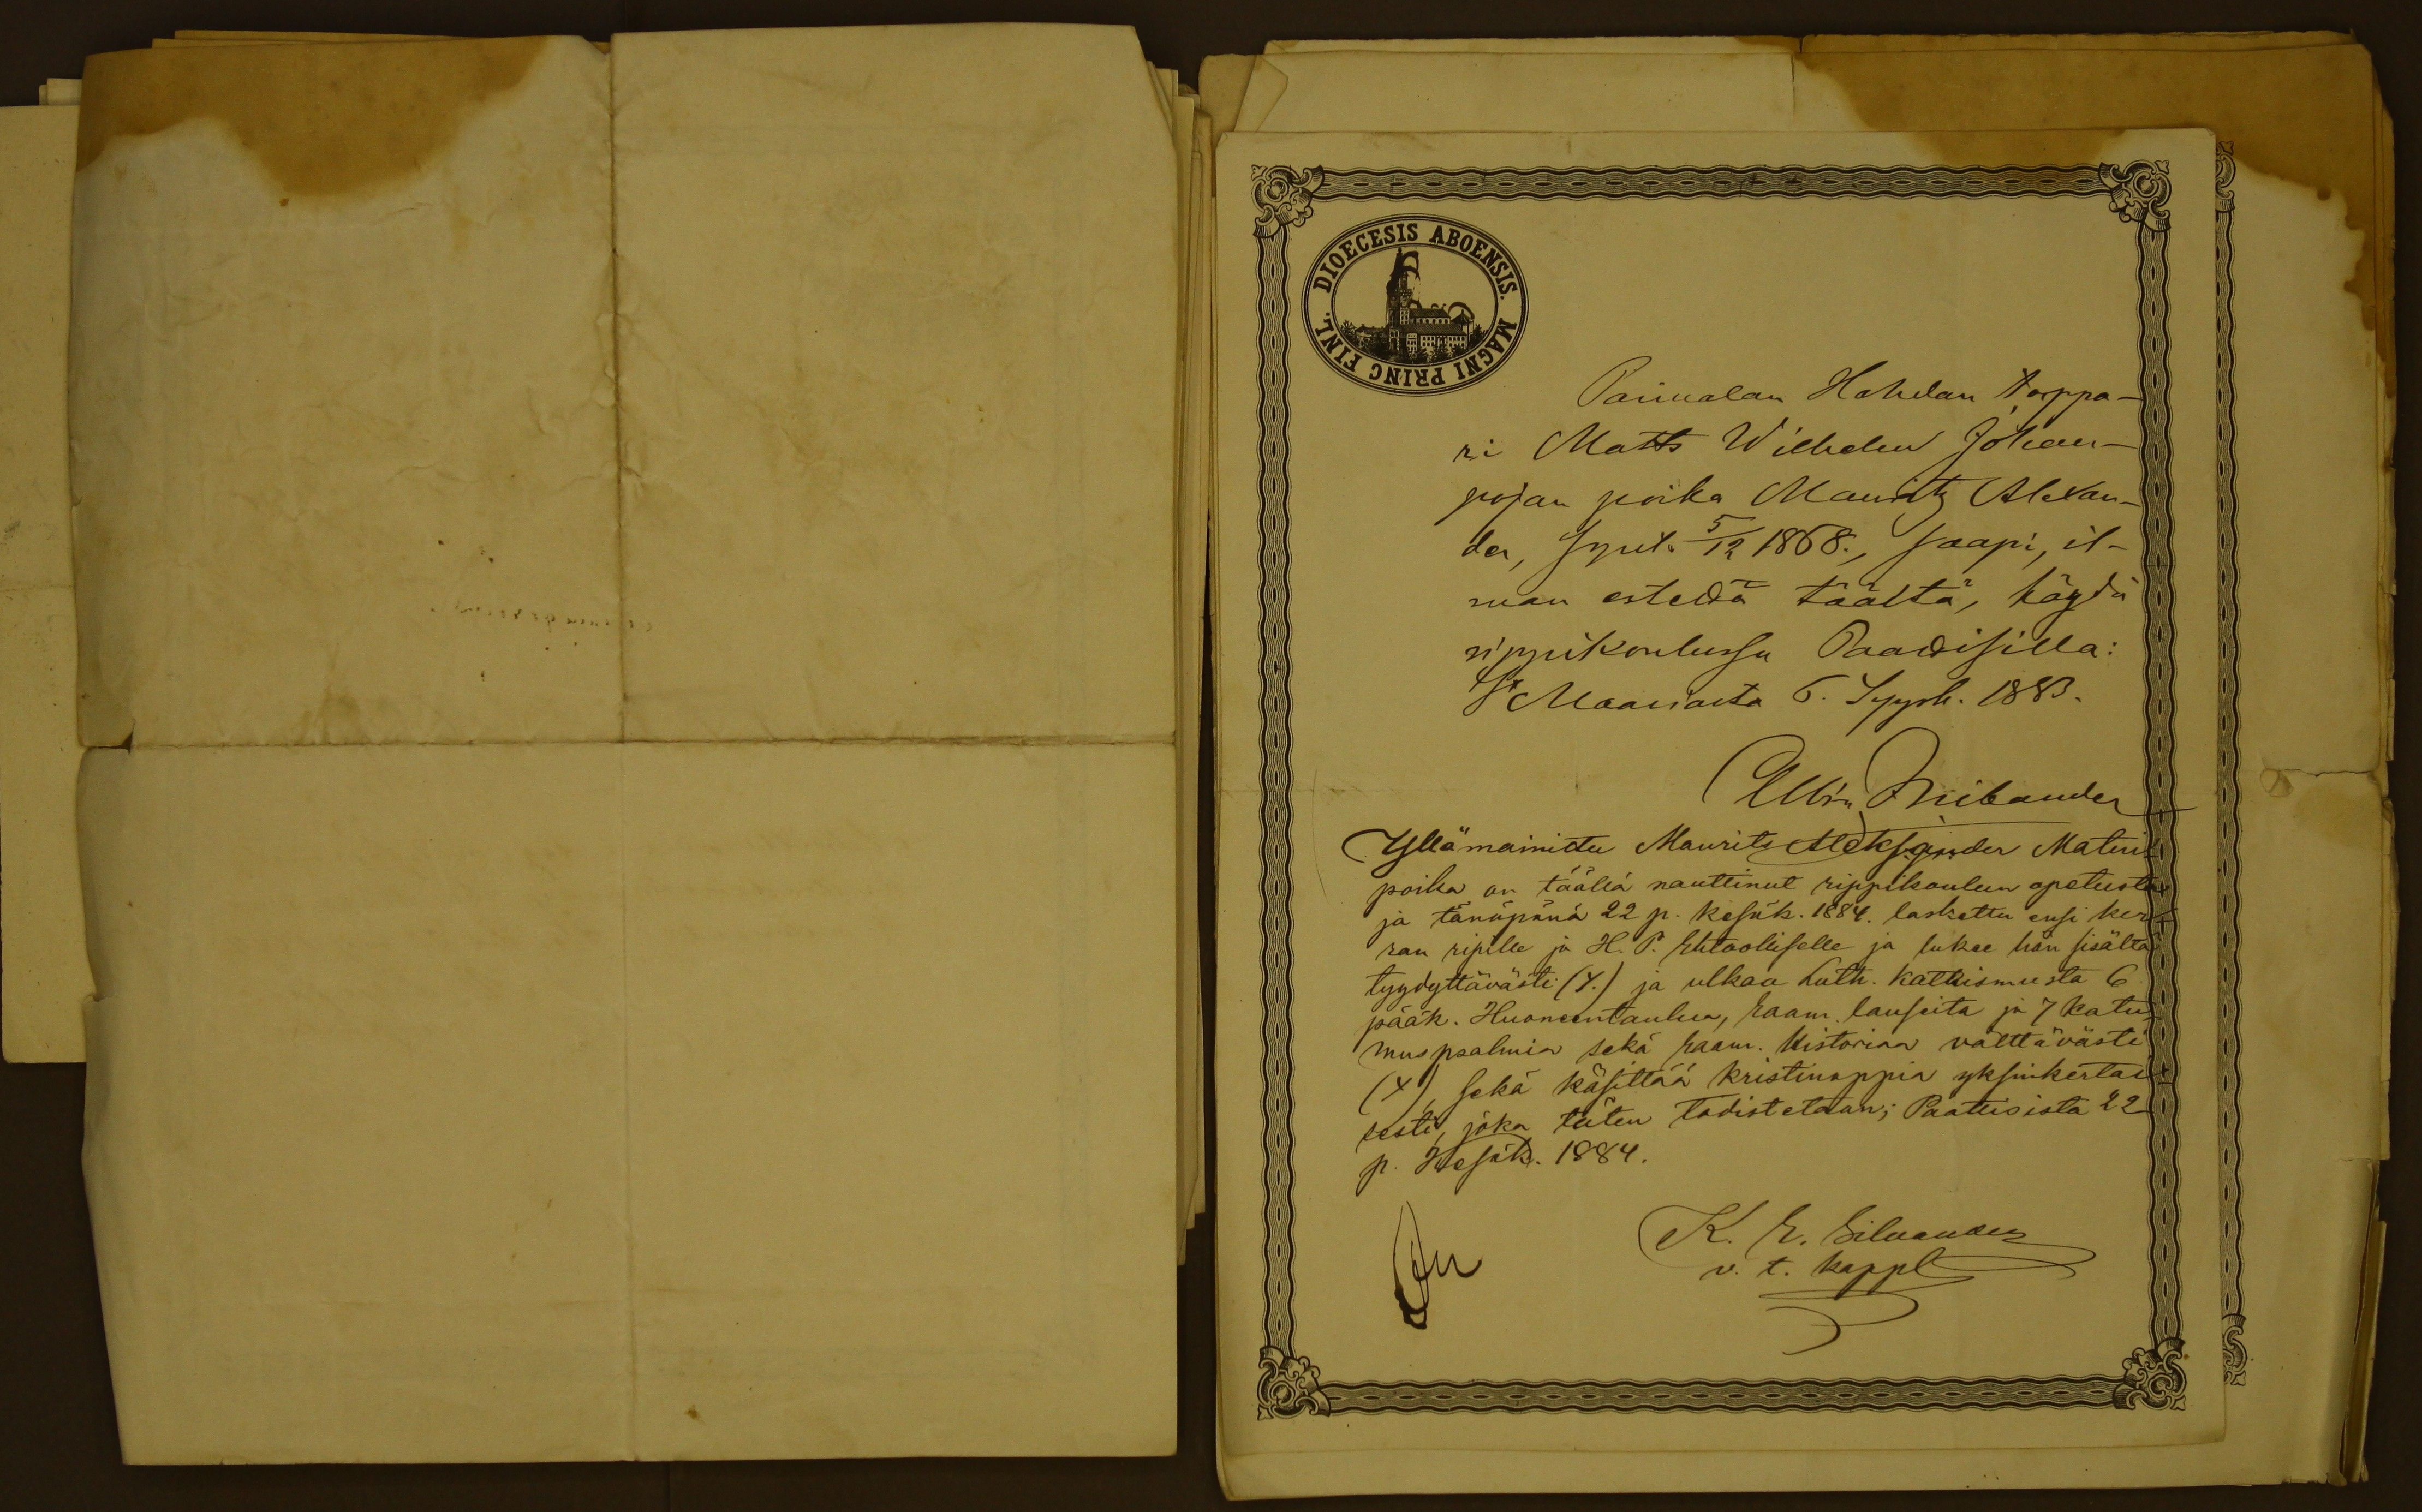 DIOECESIS ABOENSIS.
MAGNI PRINC FINL.
Hahdan torppa-
ri Matts Wilhelm Johan-
pojan poika Mauritz Alexan-
der, synt. 5/12 1868., saapi, il-
man estettä täältä, käydä
rippikoulussa Paadisilla:
St Maariasta 6. Syysk. 1883.
Albin
Yllämainittu Maurits Aleksander Matin
poika on täällä nauttinut rippikoulun opetusta
ja tänäpänä 22 p. Kesäk. 1884. laskettu ensi ker-
ran ripille ja H. P. Ehtoolliselle ja lukee hän sisältä
tyydyttävästi (y.) ja ulkoa Luth. Katkismusta 6
pääk. Huoneentaulun, raam. lauseita ja 7 katu-
muspsalmia sekä raam. historiaa välttävästi
sekä käsittää kristinoppia yksinkertai-
sesti, joka täten todistetaan; Paatisista 22
p. Kesäk. 1884.
K. E. Silvander
v. t. kappl